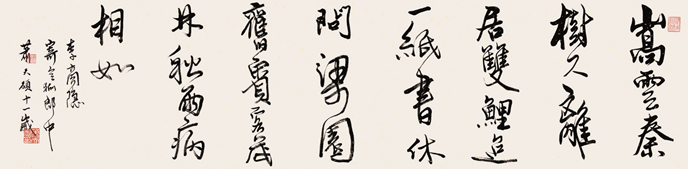 嵩雲秦
樹久離
居雙鯉迢
一紙書休
問梁園
舊賓客茂
林秋雨病
相如
李商隱
寄令狐郎中
蕭大碩十一歲